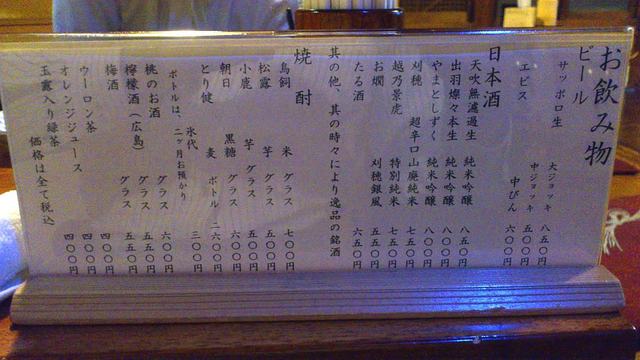 お飲み物
ビール
サッポロ生 大ジョッキ 八五〇円
中ジョッキ 五〇〇円
エビス 中びん 六〇〇円
日本酒
天吹無濾過生 純米吟醸 八五〇円
出羽燦々本生 純米吟醸 八〇〇円
やまとしずく 純米吟醸 八〇〇円
刈穂 超辛口山廃純米 七五〇円
越乃景虎 特別純米 七五〇円
お燗 刈穂銀風 五五〇円
たる酒 六五〇円
其の他、其の時々により逸品の銘酒
焼酎
鳥飼 米 グラス 七〇〇円
松露 芋 グラス 五〇〇円
小鹿 芋 グラス 五〇〇円
朝日 黒糖 グラス 六〇〇円
とり健 麦 ボトル 二六〇〇円
氷代 三〇〇円
ボトルは、二ヶ月お預かり
桃のお酒 グラス 六〇〇円
檸檬酒(広島) グラス 五五〇円
梅酒 グラス 五五〇円
ウーロン茶 四〇〇円
オレンジジュース 四〇〇円
玉露入り緑茶 四〇〇円
価格は全て税込